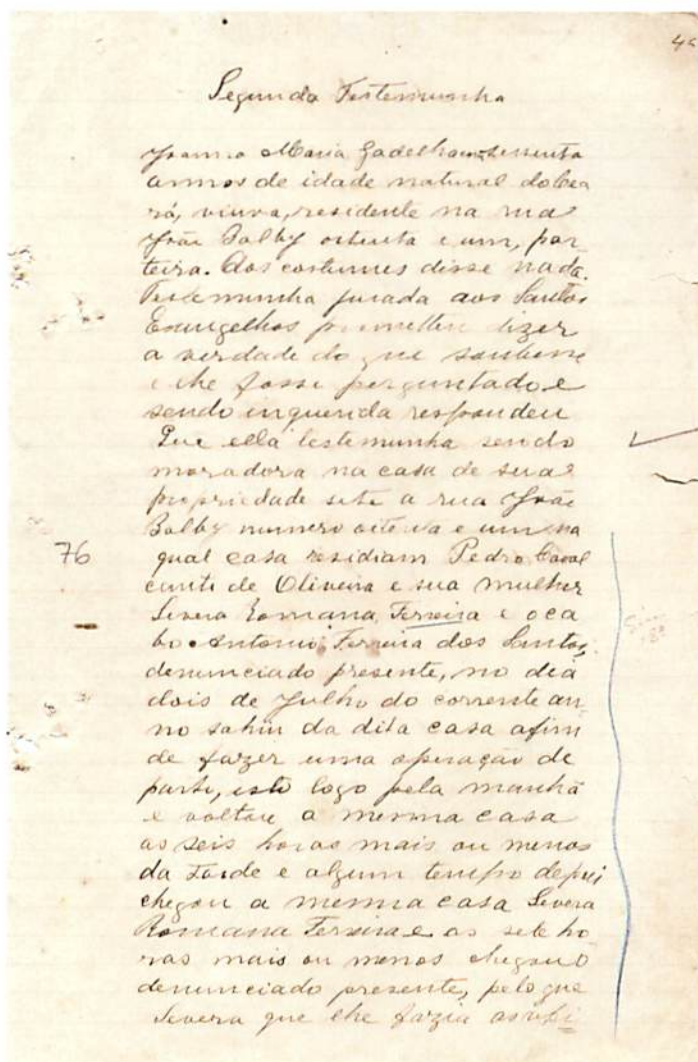 45
Segunda Testemunha
Joanna Maria Gadelha sessenta
annos de idade natural do Cea
rá, viuva, residente na rua
João Balby oitenta e um, par
teira. Aos costumes disse nada.
Testemunha jurada aos Santos
Evangelhos prometteu dizer
a verdade do que soubesse
e lhe fosse perguntado e
sendo inquerida respondeu
Que ella testemunha sendo
moradora na casa de sua
propriedade site a rua João
Balby numero oitenta e um na
76
qual casa residiam Pedro Caval
canti de Oliveira e sua mulher
Severa Romana Ferreira e o ca
bo Antonio Ferreira dos Santos,
denunciado presente, no dia
dois de Julho do corrente an
no sahiu da dita casa afim
de fazer uma operação de
parto, isto logo pela manhã
e voltou a mesma casa
as seis horas mais ou menos
da tarde e algum tempo depois
chegou a mesma casa Severa
Romana Ferreira e as sete ho
ras mais ou menos chegou o
denunciado presente, pelo que
Severa que lhe fazia as refi